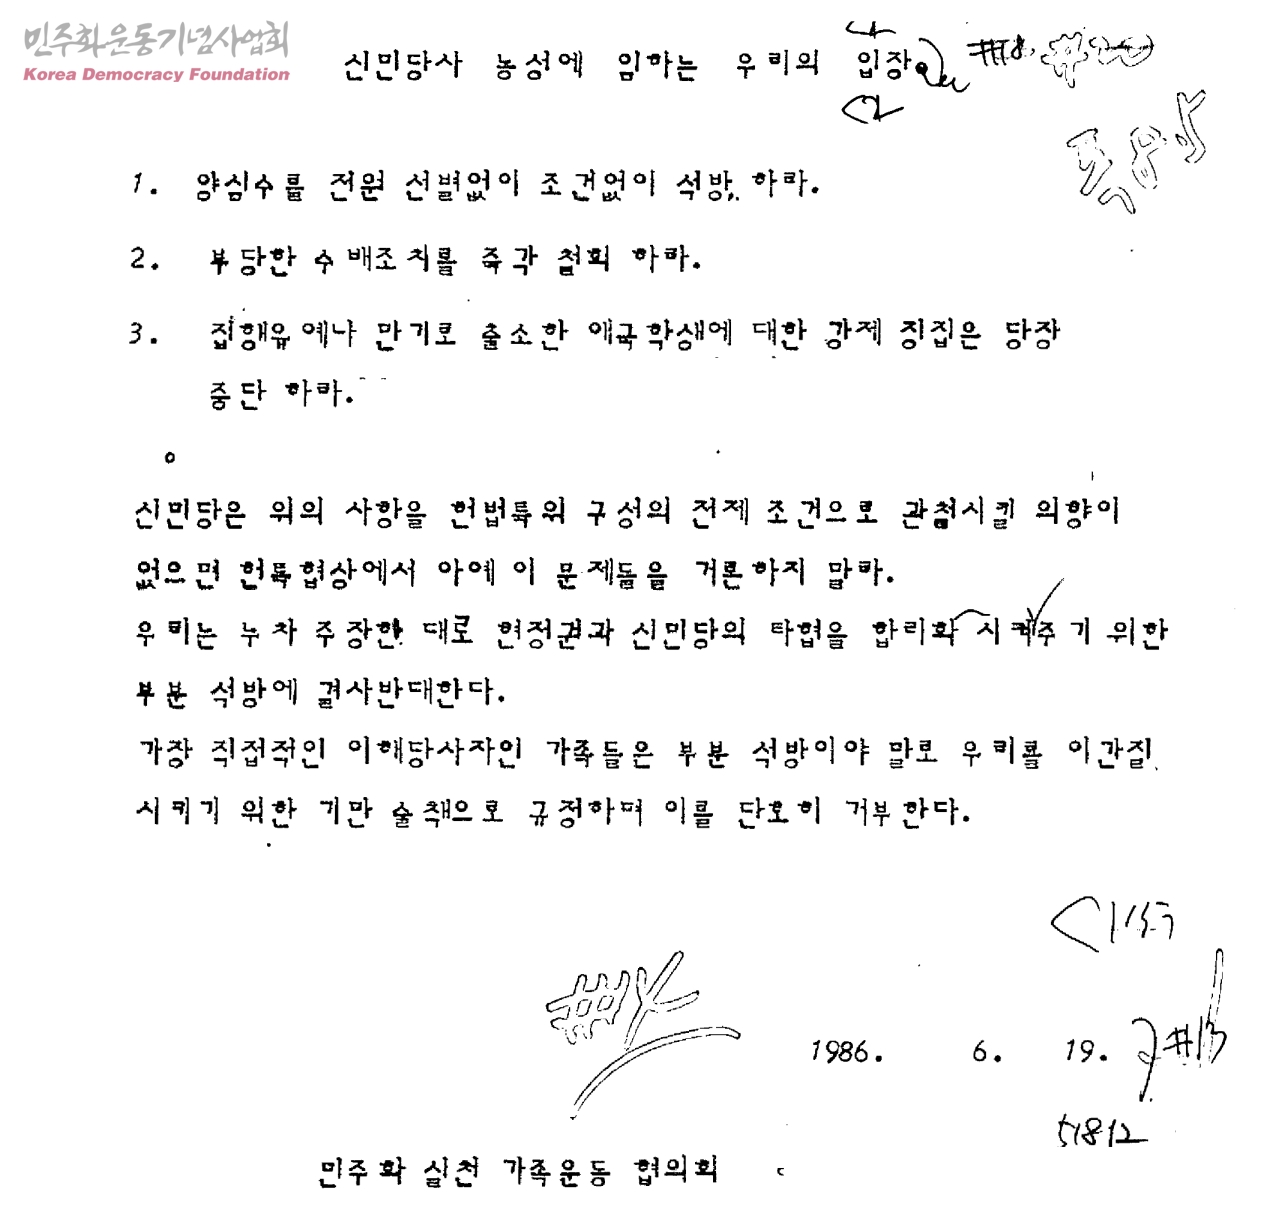 민주화운동기념사업회
Korea Democracy Foundation
신민당사 농성에 임하는 우리의 입장. #18.
1. 양심수를 전원 선별없이 조건없이 석방 하라.
2. 부당한 수배조치를 즉각 철회 하라.
3. 집행유예나 만기로 출소한 애국학생에 대한 강제 징집은 당장
중단 하라.
신민당은 위의 사항을 헌법특위 구성의 전제 조건으로 관철시킬 의향이
없으면 헌특협상에서 아예 이 문제들을 거론하지 말라.
우리는 누차 주장한 대로 현정권과 신민당의 타협을 합리화 시켜주기 위한
부분 석방에 결사반대한다.
가장 직접적인 이해당사자인 가족들은 부분 석방이야 말로 우리를 이간질
시키기 위한 기만 술책으로 규정하며 이를 단호히 거부한다.
1986. 6. 19. #13
51812
민주화 실천 가족운동 협의회